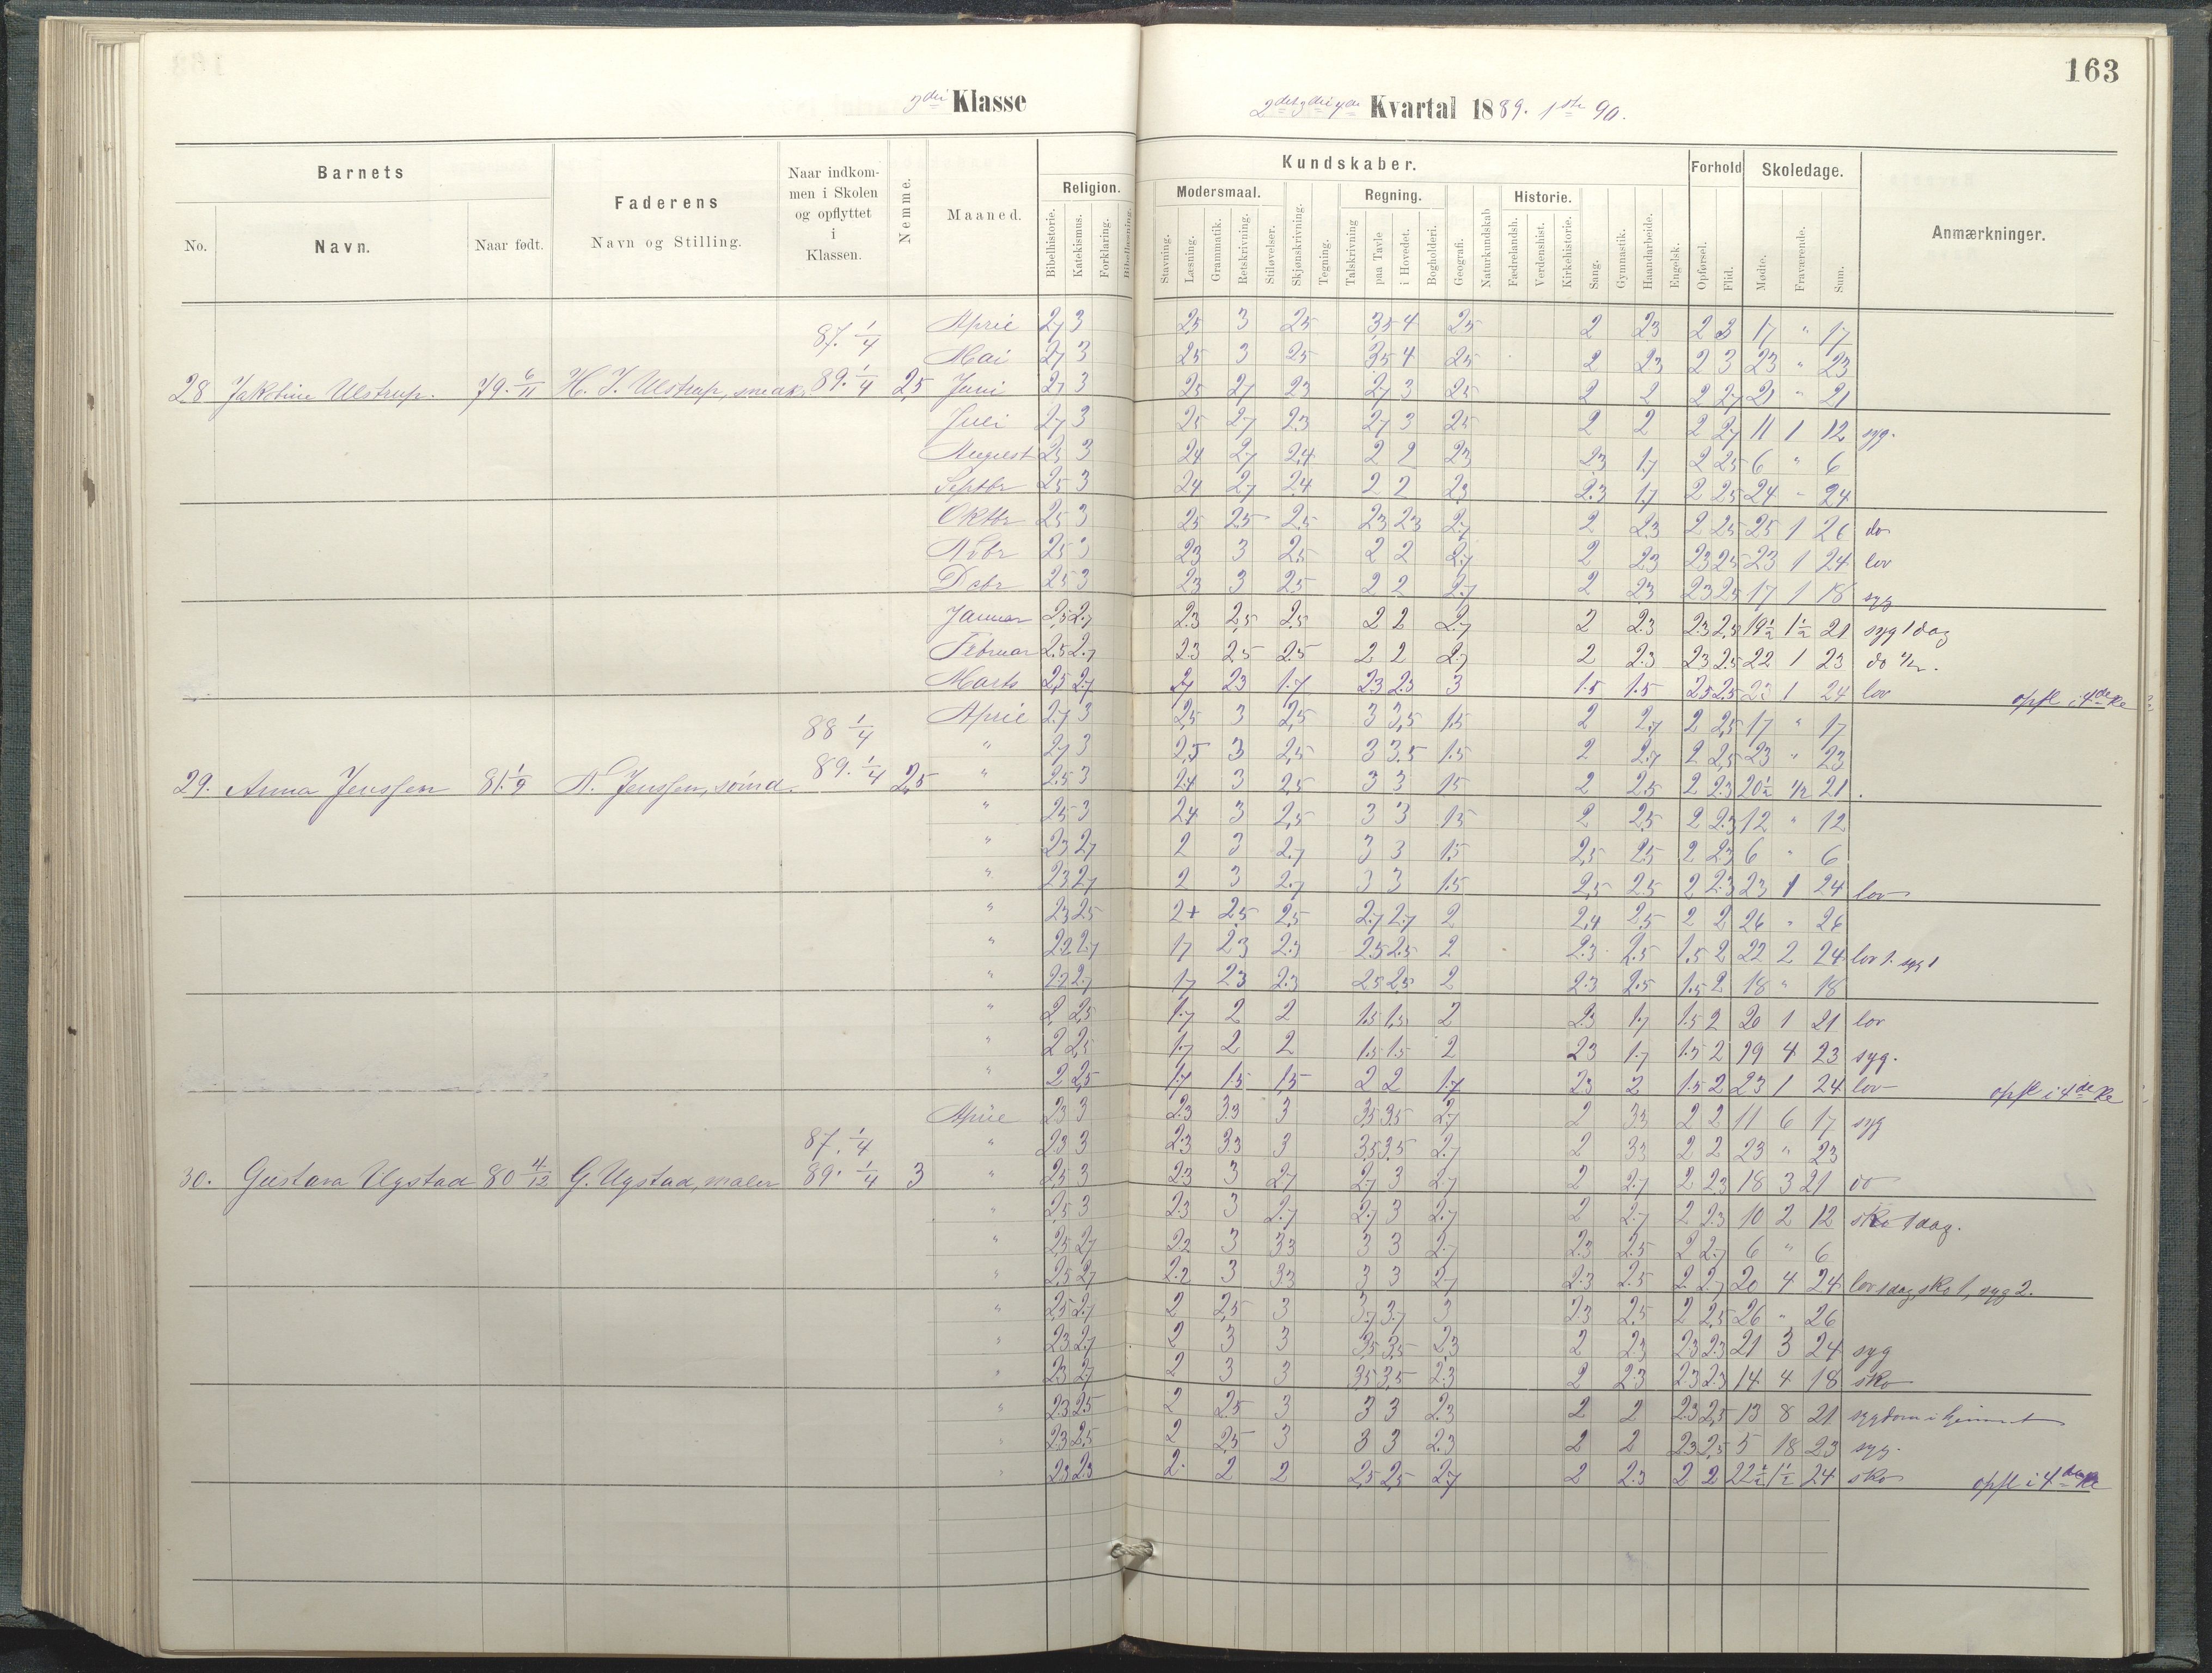 163
3die Klasse
2det 3die 4de Kvartal 1889. 1ste 90.
Barnets
Faderens
Naar indkommen i Skolen og opflyttet i Klassen.
Nemme.
Maaned.
Kundskaber.
Forhold
Skoledage.
Anmærkninger.
No.
Navn.
Naar født.
Navn og Stilling.
Religion.
Modersmaal.
Regning.
Historie.
Bibelhistorie. Katekismus. Forklaring. Bibellæsning. Stavning. Læsning. Grammatik. Retskrivning. Stiløvelser. Skjønskrivning. Tegning. Talskrivning paa Tavle i Hovedet. Bogholderi. Geografi. Naturkundskab Fædrelandsh. Verdenshist. Kirkehistorie. Sang. Gymnastik. Haandarbeide. Engelsk. Opførsel. Flid. Mødte. Fraværende. Sum.
April 2,7 3 2,5 3 2,5 3,5 4 2,5 2 2,3 2 3 17 " 17
87. 1/4
Mai 2,7 3 2,5 3 2,5 3,5 4 2,5 2 2,3 2 3 23 " 23
28 Jakobine Ulstrup. 79. 6/11 H. J. Ulstrup, snedk. 89. 1/4 2,5 Juni 2,7 3 2,5 2,7 2,3 2,7 3 2,5 2 2 2 2,7 21 " 21
Juli 2,7 3 2,5 2,7 2,3 2,7 3 2,5 2 2 2 2,7 11 1 12 syg.
August 2,5 3 2,4 2,7 2,4 2 2 2,3 2,3 1,7 2 2,5 6 " 6
Septbr 2,5 3 2,4 2,7 2,4 2 2 2,3 2.3 1,7 2 2,5 24 " 24
Oktbr 2,5 3 2,5 2,5 2,5 2,3 2,3 2,7 2 2,3 2 2,5 25 1 26 do
Nvbr 2,5 3 2,3 3 2,5 2 2 2,7 2 2,3 2,3 2,5 23 1 24 lov
Dcbr 2,5 3 2,3 3 2,5 2 2 2,7 2 2,3 2,3 2,5 17 1 18 syg
Januar 2,5 2,7 2.3 2,5 2,5 2 2 2,7 2 2.3 2.3 2,5 19 1/2 1 1/2 21 syg 1 dag
Februar 2.5 2.7 2.3 2.5 2.5 2 2 2,7 2 2.3 2,3 2.5 22 1 23 do 1/2.
Marts 2,5 2,7 2,7 2,3 1.7 2.3 2.3 3 1.5 1.5 2,5 2,5 23 1 24 lov opfl i 4de Kl
April 2,7 3 2,5 3 2,5 3 3,5 1.5 2 2,7 2 2,5 17 " 17
88 1/4
" 2,7 3 2,5 3 2,5 3 3.5 1.5 2 2,7 2 2,5 23 " 23
29. Anna Jenssen 81. 1/9 N. Jenssen, sömd. 89. 1/4 2,5 " 2.5 3 2.4 3 2,5 3 3 1,5 2 2.5 2 2.3 20 1/2 1/2 21
" 2,5 3 2,4 3 2,5 3 3 1,5 2 2,5 2 2.3 12 " 12
" 2,3 2,7 2 3 2,7 3 3 1.5 2,5 2.5 2 2.3 6 " 6
" 2,3 2,7 2 3 2,7 3 3 1.5 2,5 2.5 2 2.3 23 1 24 lov
" 2,3 2,5 2+ 2,5 2,5 2,7 2,7 2 2,4 2,5 2 2 26 " 26
" 2.2 2.7 1,7 2.3 2.3 2.5 2.5 2 2.3 2.5 1.5 2 22 2 24 lov 1. syg 1
" 2.2 2.7 1,7 2.3 2.3 2.5 2.5 2 2.3 2.5 1.5 2 18 " 18
" 2 2,5 1.7 2 2 1.5 1.5 2 2.3 1.7 1.5 2 20 1 21 lov
" 2 2,5 1.7 2 2 1.5 1.5 2 2,3 1.7 1.5 2 19 4 23 syg.
" 2 2,5 1,7 1.5 1,5 2 2 1.7 2,3 2 1.5 2 23 1 24 lov opfl i 4de Kl
April 2,3 3 2.3 3.3 3 3,5 3,5 2,7 2 3,3 2 2 11 6 17 syg
87. 1/4
" 2,3 3 2.3 3.3 3 3,5 3,5 2,7 2 3,3 2 2 23 " 23
30. Gustava Ugstad 80 4/12 G. Ugstad, maler 89. 1/4 3 " 2,5 3 2.3 3 2,7 2,7 3 2,7 2 2,7 2 2,3 18 3 21 do
" 2,5 3 2.3 3 2,7 2,7 3 2,7 2 2,7 2 2.3 10 2 12 sko 1 dag.
" 2,5 2,7 2,2 3 3,3 3 3 2,7 2.3 2.5 2 2,7 6 " 6
" 2,5 2,7 2.2 3 3.3 3 3 2,7 2.3 2.5 2 2,7 20 4 24 lov 1 dag, sko 1, syg 2.
" 2,5 2,7 2 2,5 3 3,7 3,7 3 2,3 2,5 2 2,5 26 " 26
" 2,3 2,7 2 3 3 3,5 3,5 2,3 2 2,3 2,3 2.3 21 3 24 syg
" 2.3 2,7 2 3 3 3,5 3,5 2.3 2 2.3 2,3 2.3 14 4 18 sko
" 2.3 2.5 2 2.5 3 3 3 2.3 2 2 2.3 2,5 13 8 21 sygdom i hjemmet
" 2.3 2.5 2 2,5 3 3 3 2.3 2 2 2,3 2,5 5 18 23 syg.
" 2.3 2.3 2. 2 2 2,5 2,5 2.7 2 2.3 2 2 22 1/2 1 1/2 24 sko opfl i 4de Kl